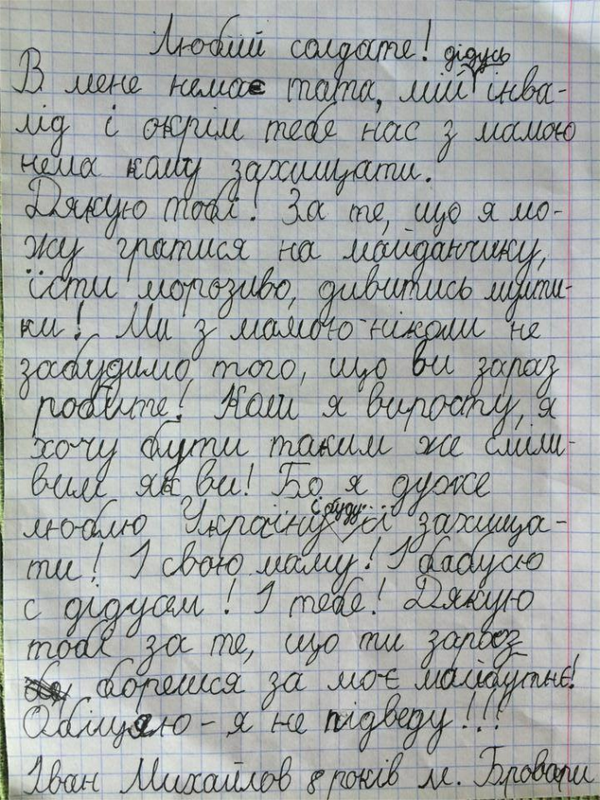 Любий солдате!
дідусь
В мене немає тата, мій інва-
лід і окрім тебе нас з мамою
нема кому захищати.
Дякую тобі! За те, що я мо-
жу гратися на майданчику,
їсти морозиво, дивитись мульти-
ки! Ми з мамою ніколи не
забудимо того, що ви зараз
робите! Коли я виросту, я
хочу бути таким же сміли-
вим як ви! Бо я дуже
і буду
люблю Україну її захища-
ти! І свою маму! І бабусю
с дідусем! І тебе! Дякую
тобі за те, що ти зараз
борешся за моє майбутнє!
Обіцяю - я не підведу!!!
Іван Михайлов 8 років м. Бровари